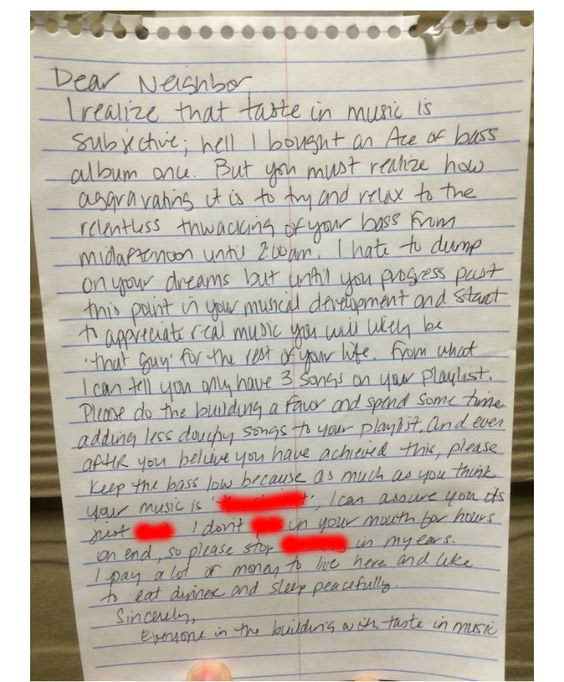 Dear Neighbor
I realize that taste in music is
subjective; hell I bought an Ace of bass
album once. But you must realize how
aggravating it is to try and relax to the
relentless thwacking of your bass from
midafternoon until 2:00am. I hate to dump
on your dreams but until you progress past
this point in your musical development and start
to appreciate real music you will likely be
'that guy' for the rest of your life. From what
I can tell you only have 3 songs on your playlist.
Please do the building a favor and spend some time
adding less douchy songs to your playlist. And even
after you believe you have achieved this, please
keep the bass low because as much as you think
your music is ' ', I can assure you its
just I don't in your mouth for hours
on end, so please stop in my ears.
I pay a lot of money to live here and like
to eat dinner and sleep peacefully.
Sincerely,
Everyone in the building with taste in music